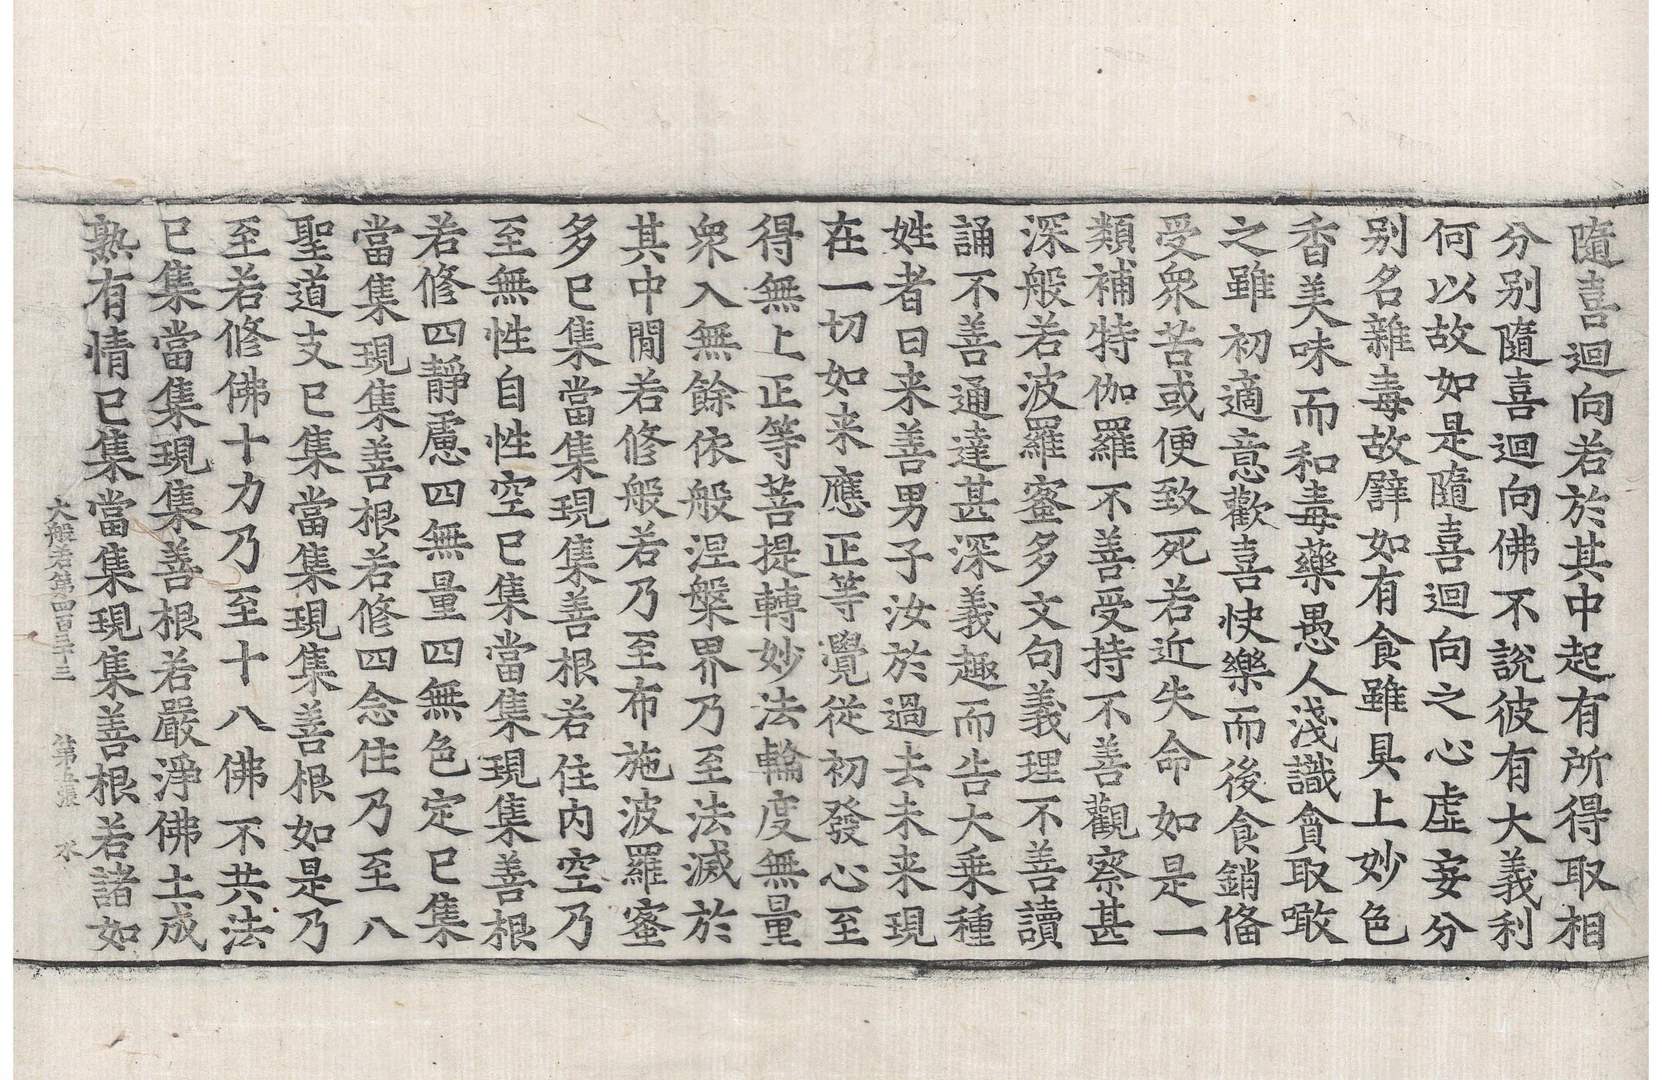 隨喜迴向若於其中起有所得取相
分別隨喜迴向佛不說彼有大義利
何以故如是隨喜迴向之心虛妄分
別名雜毒故譬如有食雖具上妙色
香美味而和毒藥愚人淺識貪取噉
之雖初適意歡喜快樂而後食銷俻
受衆苦或便致死若近失命如是一
類補特伽羅不善受持不善觀察甚
深般若波羅蜜多文句義理不善讀
誦不善通達甚深義趣而告大乗種
姓者曰来善男子汝於過去未来現
在一切如来應正等覺從初發心至
得無上正等菩提轉妙法輪度無量
衆入無餘依般涅槃界乃至法滅於
其中閒若修般若乃至布施波羅蜜
多已集當集現集善根若住内空乃
至無性自性空已集當集現集善根
若修四靜慮四無量四無色定已集
當集現集善根若修四念住乃至八
聖道支已集當集現集善根如是乃
至若修佛十力乃至十八佛不共法
已集當集現集善根若嚴淨佛土成
熟有情已集當集現集善根若諸如
大般若第四百三十三 第五張 水